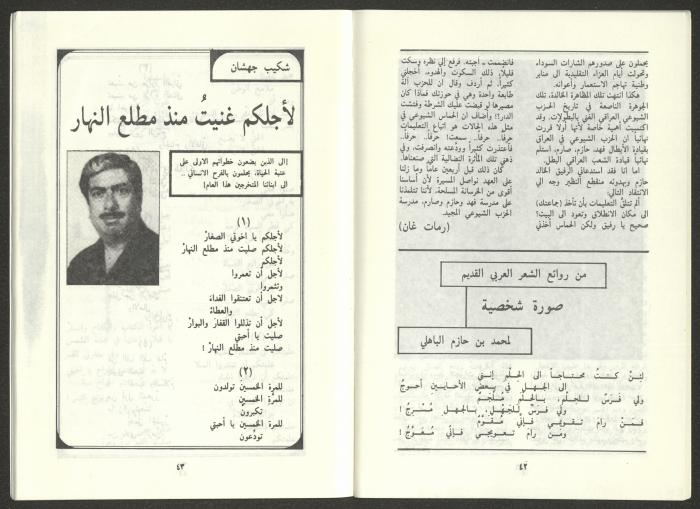 يحملون على صدورهم الشارات السوداء
وتحولت أيام العزاء التقليدية الى منابر
وطنية تهاجم الاستعمار وأعوانه.
هكذا انتهت تلك المظاهرة الخالدة، تلك
الجوهرة الناصعة في تاريخ الحزب
الشيوعي العراقي الغني بالبطولات. وقد
اكتسبت أهمية خاصة لأنها أولا قررت
نهائياً ان الحزب الشيوعي في العراق
بقيادة الأبطال فهد، حازم، صارم، استلم
نهائياً قيادة الشعب العراقي البطل.
اما انا فقد استدعاني الرفيق الخالد
حازم وبهدوئه منقطع النظير وجه الي
الانتقاد التالي:
ألم تتلق التعليمات بأن تأخذ (جماعتك)
الى مكان الانطلاق وتعود الى البيت؟
صحيح يا رفيق ولكن الحماس أخذني
فانضممت ـ اجبته. فرفع إلي نظره وسكت
قليلا، ذلك السكوت والهدوء، أخجلني
كثيراً، ثم أردف وقال ان للحزب آلة
طابعة واحدة وهي في حوزتك فماذا كان
مصيرها لو قبضت عليك الشرطة وفتشت
الدار؟! وأضاف ان الحماس الشيوعي في
مثل هذه الحالات هو اتباع التعليمات
حرفا.. حرفا.. سمعت! حرفا. حرفا..
فأعتذرت كثيراً وودعته وانصرفت، وفي
ذهني تلك المأثرة النضالية التي صنعناها.
كان ذلك قبل أربعين عاما وما زلنا
على العهد نواصل المسيرة لأن أساسنا
أقوى من الخرسانة المسلحة، لأننا تتلمذنا
على مدرسة فهد وحازم وصارم، مدرسة
الحزب الشيوعي المجيد.
(رمات غان)
من روائع الشعر العربي القديم
صورة شخصية
لمحمد بن حازم الباهلي
لئن كنت محتاجاً الى الحلم إنني
إلى الجهل في بعض الأحايين أحوج
ولي فرس للحلم، بالحلم ملجم
ولي فرس للجهل، بالجهل مسرج !
فمن رام تقويمي فإني مقوم
ومن رام تعويجي فإني معوج !
٤٢
شكيب جهشان
لأجلكم غنيتُ منذ مطلع النهار
(الى الذين يضعون خطواتهم الاولى على
عتبة الحياة، يحملون بالفرح الانساني ..
الى ابنائنا المتخرجين هذا العام)
(١)
لأجلكم يا اخوتي الصغارْ
لأجلكم صليت منذ مطلع النهارْ
لأجلكم
لأجل أن تعمروا
وتثمروا
لاجل أن تعتنقوا الفداءَ
والعطاءَ
لأجل أن تذللوا القفارَ والبوارْ
صليت يا أحبتي
صليت منذ مطلع النهارْ !
(٢)
للمرة الخمسينَ تولدون
للمرة الخمسين
تكبرون
للمرة الخمسين يا أحبتي
تودّعون
٤٣